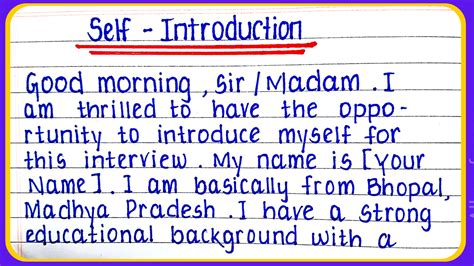 Self - Introduction
Good morning, Sir/Madam. I
am thrilled to have the oppo-
rtunity to introduce myself for
this interview. My name is [Your
Name]. I am basically from Bhopal,
Madhya Pradesh. I have a strong
educational background with a